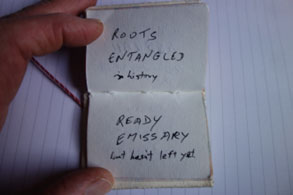 ROOTS
ENTANGLED
in history
READY
EMISSARY
but hasn't left yet